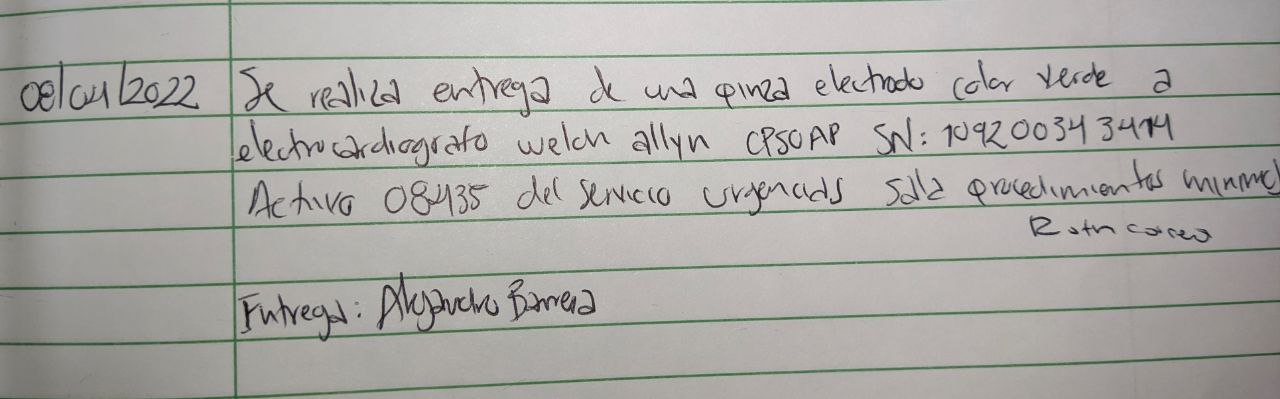 08/04/2022 Se realiza entrega de una pinza electrodo color verde a
electrocardiografo welch allyn CP50AP SN: 109200343414
Activo 08435 del servicio urgencias sala procedimientos minimo
Entrega: Alejandro Barrera